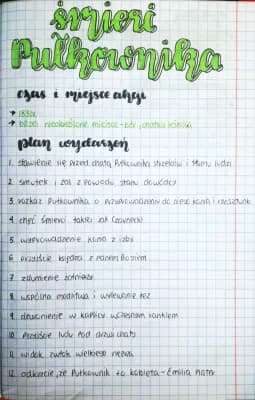 śmierć
Pułkownika
czas i miejsce akcji
→ 1831r.
→ bliżej nieokreślone miejsce - bór, chatka leśnika
plan wydarzeń
1. stawienie się przed chatą Pułkownika strzelców i tłumu ludzi
2. smutek i żal z powodu stanu dowódcy
3. rozkaz Pułkownika o przyprowadzeniu do niego konia i rzeczy
4. chęć śmierci takiej jak Czarniecki
5. wyprowadzenie konia z izby
6. przyjście księdza z Panem Bogiem
7. zdumienie żołnierzy
8. wspólna modlitwa i wylewanie łez
9. dzwonienie w kaplicy wczesnym rankiem
10. Przyjście ludu pod drzwi chaty
11. widok zwłok wielkiego
12. odkrycie, że Pułkownik to kobieta - Emilia Plater